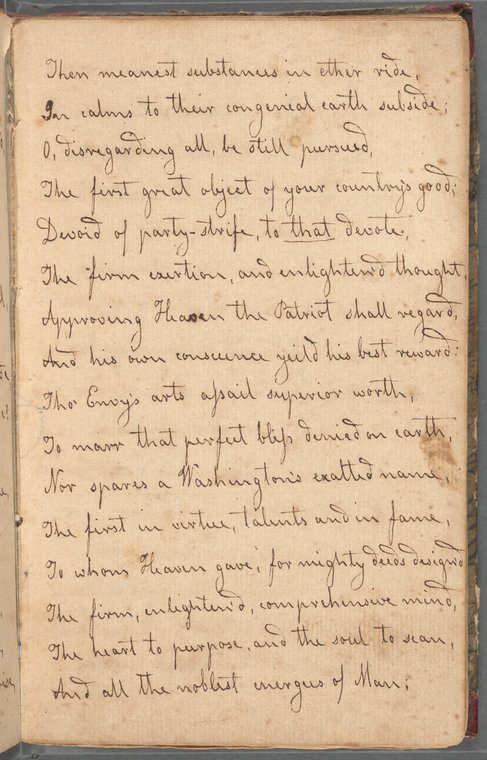 Then meanest substances in ether ride,
In calms to their congenial earth subside;
O, disregarding all, be still pursued,
The first great object of your country's good;
Devoid of party-strife, to that devote,
The firm exertion, and enlighten'd thought,
Approving Heaven the Patriot shall regard,
And his own conscience yeild his best reward:
Tho' Envy's arts assail superior worth,
To marr that perfect bliss denied on earth,
Nor spares a Washington's exalted name,
The first in virtue, talents and in fame,
To whom Heaven gave, for mighty deeds design'd
The firm, enlighten'd, comprehensive mind,
The heart to purpose, and the soul to scan,
And all the noblest energies of Man;